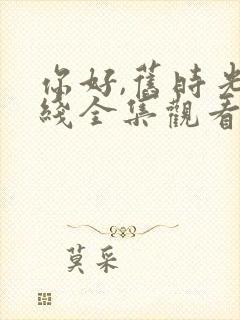 你好,舊時光
綫全集觀看
莫采